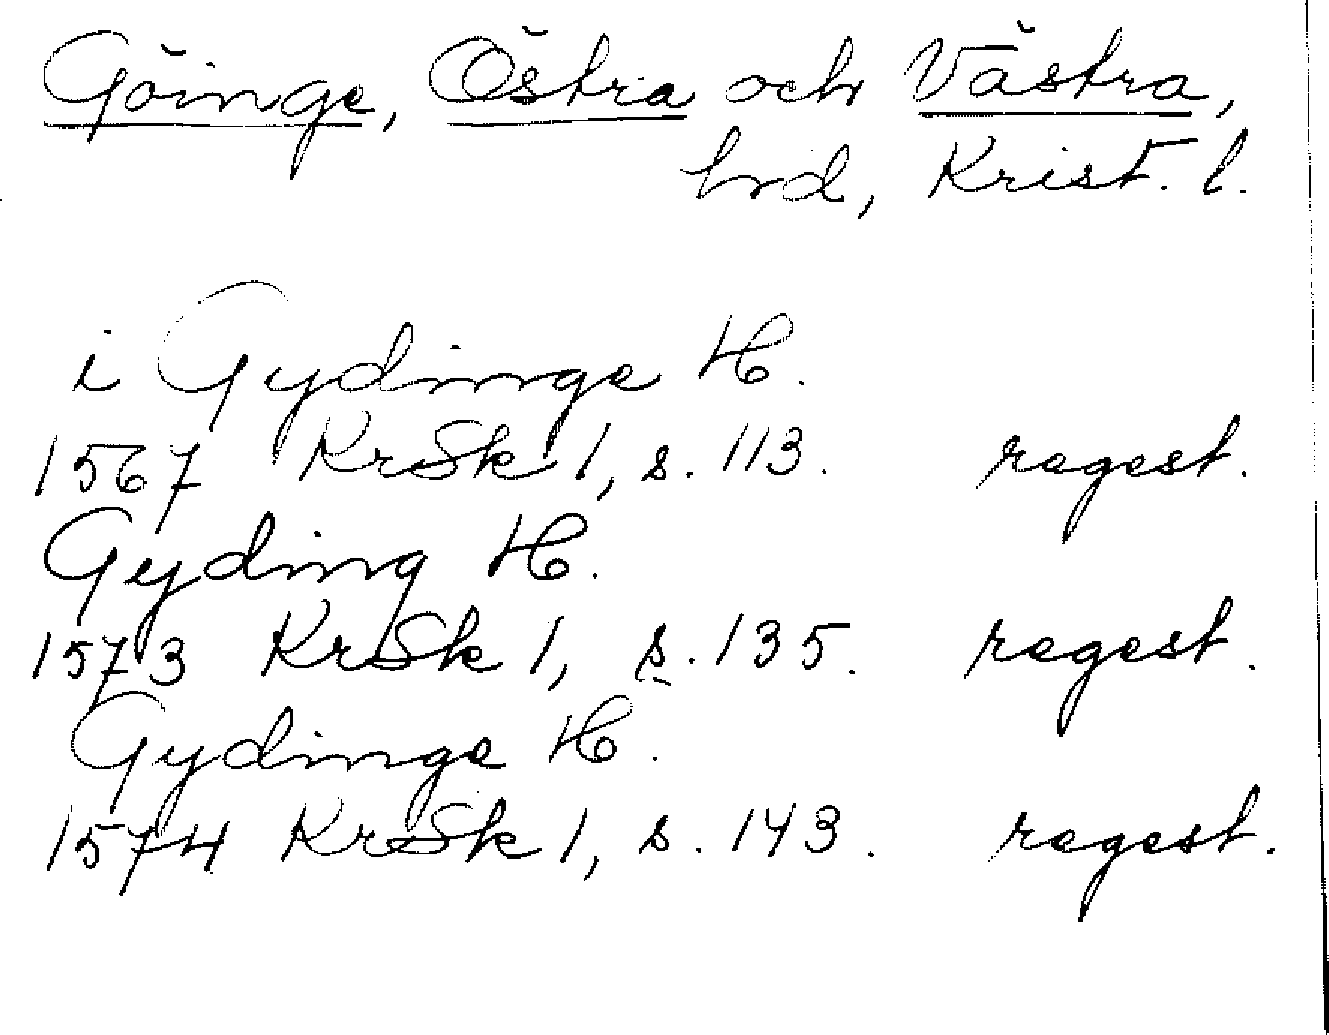 Göinge, Östra och Västra,
hrd, Krist. l.
i Gydinge H.
1567 KrSk 1, s. 113. regest.
Gyding H.
1573 KrSk 1, s. 135. regest.
Gydinge H.
1574 KrSk 1, s. 143. regest.